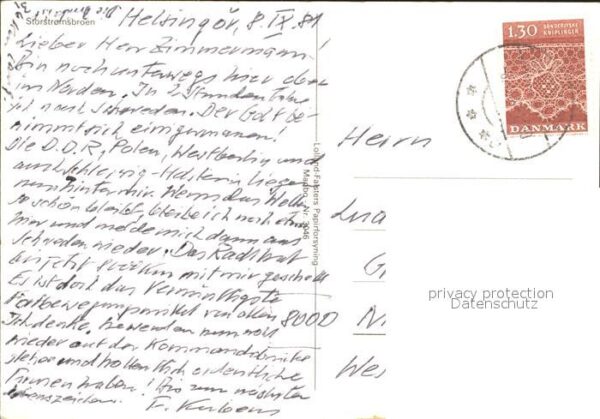 Storstrømsbroen
Helsingör, 8. IX. 81
Lieber Herr Zimmermann!
Bin noch unterwegs hier oben
im Norden. In 2 Stunden fahre
ich nach Schweden. Der Golf be-
nimmt sich einigermassen!
Die D.D.R, Polen, Westberlin und
auch Schleswig-Holstein liegen
nun hinter mir. Wenn das Wetter
so schön bleibt, bleibe ich noch
hier und melde mich dann aus
Schweden wieder. Das Radl hat
bis jetzt mit mir geschafft
Es ist doch das Vernünftigste
Fortbewegungsmittel von allen
Ich denke, Sie werden nun wohl
wieder auf der Kommandobrücke
stehen und hoffentlich ordentliche
haben! Bis zum nächsten
Lebenszeichen.
F. Kubens
Lolland-Falsters Papirforsyning
Maribo Nr. 3046
1.30 SØNDERJYSKE
KNIPLINGER
DANMARK
Herrn
8000
privacy protection
Datenschutz